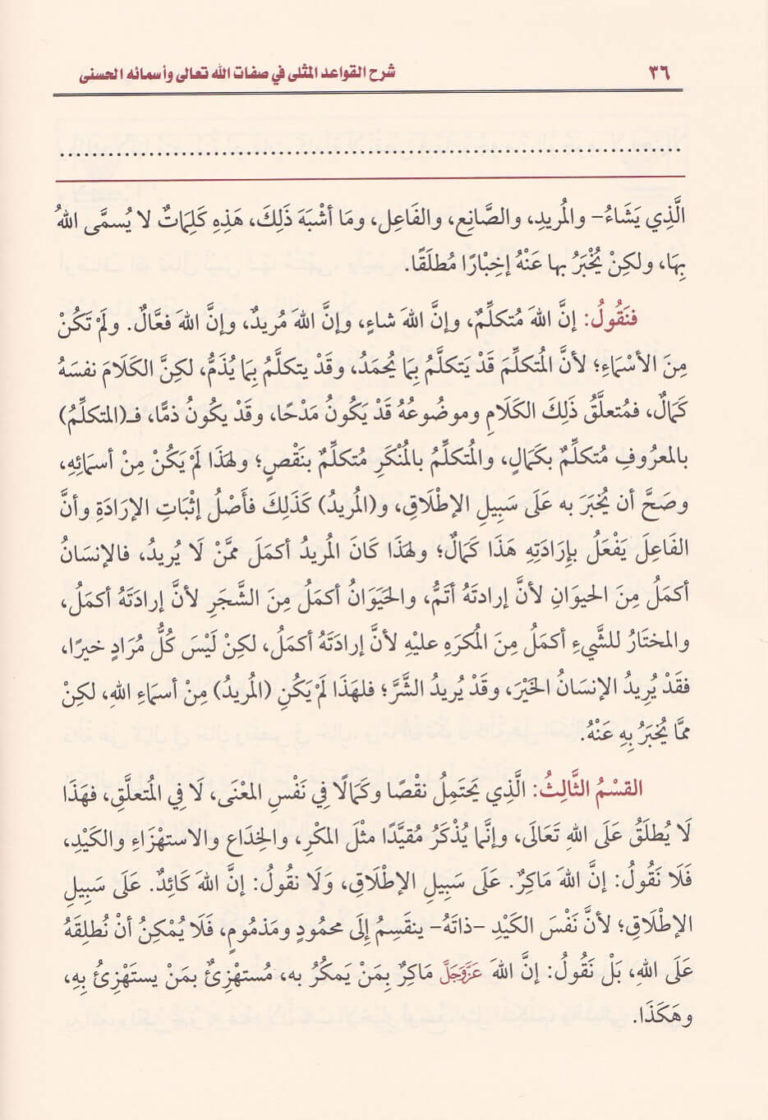 ٣٦ شرح القواعد المثلى في صفات الله تعالى وأسمائه الحسنى
الَّذِي يَشَاءُ- والمُريدِ، والصَّانِعِ، والفَاعِلِ، ومَا أشْبَهَ ذَلِكَ، هَذِهِ كَلِمَاتٌ لا يُسمَّى اللهُ
بِهَا، ولكِنْ يُخْبَرُ بها عَنْهُ إخِبْارًا مُطلَقًا.
فنَقُولُ: إنَّ اللهَ مُتكلِّمٌ، وإنَّ اللهَ شاءٍ، وإنَّ اللهَ مُريدٌ، وإنَّ اللهَ فعَّالٌ. ولَمْ تَكُنْ
مِنَ الأسْمَاءِ؛ لأنَّ المُتكلِّمَ قَدْ يَتكلَّمُ بِمَا يُحمَدُ، وقَدْ يتكلَّمُ بِمَا يُذَمُّ، لكِنَّ الكَلَامَ نفسَهُ
كَمالٌ، فمُتعلَّقُ ذَلِكَ الكَلَامِ وموضُوعُهُ قَدْ يَكُونُ مَدْحًا، وقَدْ يكُونُ ذمًّا، فـ(المتكلِّمُ)
بالمعرُوفِ مُتكلِّمٌ بكَمَالٍ، والمُتكلِّمُ بالمُنْكَرِ مُتكلِّمٌ بنَقْصٍ؛ ولهَذَا لَمْ يَكُنْ مِنْ أسمَائِهِ،
وصَحَّ أن يُخبَرَ به عَلَى سَبِيلِ الإطْلَاقِ، و(المُريدُ) كَذَلِكَ فأَصْلُ إثْبَاتِ الإرَادَةِ وأنَّ
الفَاعِلَ يَفْعَلُ بإِرَادَتِهِ هَذَا كَمَالٌ؛ ولهَذَا كَانَ المُريدُ أكمَلَ ممَّنْ لَا يُريدُ، فالإنسَانُ
أكمَلُ مِنَ الحيوَانِ لأنَّ إرادتَهُ أتَمُّ، والحَيَوَانُ أكمَلُ مِنَ الشَّجَرِ لأنَّ إرادَتَهُ أكمَلُ،
والمختَارُ للشَّيءِ أكمَلُ مِنَ المُكرَهِ عليْهِ لأنَّ إرَادَتَهُ أكمَلُ، لكِنْ لَيْسَ كُلُّ مُرَادٍ خيرًا،
فقَدْ يُرِيدُ الإنسَانُ الخَيْرَ، وقَدْ يُريدُ الشَّرَّ؛ فلهَذَا لَمْ يَكُنِ (المُريدُ) مِنْ أسمَاءِ اللهِ، لكِنْ
ممَّا يُخبَرُ بِهِ عَنْهُ.
القسْمُ الثَّالِثُ: الَّذِي يَحْتَمِلُ نقْصًا وكَمَالًا فِي نَفْسِ المَعْنَى، لَا فِي المُتعلَّقِ، فهَذَا
لَا يُطلَقُ عَلَى اللهِ تَعَالَى، وإنَّما يُذْكَرُ مُقيَّدًا مثْلَ المكْرِ، والخِدَاعِ والاستهْزَاءِ والكَيْدِ،
فَلَا نَقُولُ: إنَّ اللهَ مَاكِرٌ. عَلَى سَبِيلِ الإطْلَاقِ، وَلَا نقُولُ: إنَّ اللهَ كَائِدٌ. عَلَى سَبِيلِ
الإطْلَاقِ؛ لأنَّ نَفْسَ الكَيْدِ -ذاتَهُ- ينقَسِمُ إلَى محمُودٍ ومَذمُومٍ، فَلَا يُمْكِنُ أنْ نُطلِقَهُ
عَلَى اللهِ، بَلْ نَقُولُ: إنَّ اللهَ عَزَّوَجَلَّ مَاكِرٌ بِمَنْ يَمكُرُ به، مُستهْزِئٌ بمَنْ يستَهْزِئُ بِهِ،
وهَكَذَا.